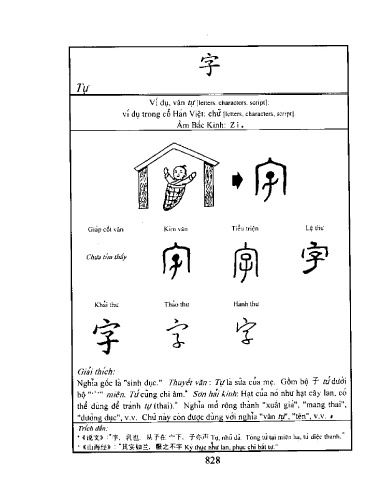 字
Tự
Ví dụ, văn tự [letters, characters, script];
ví dụ trong cổ Han Việt: chữ [letters, characters, script].
Âm Bắc Kinh: Zì.
Giáp cốt văn Kim văn Tiểu triện Lệ thư
Chưa tìm thấy 字 字 字
Khải thư Thảo thư Hành thư
字 字 字
Giải thích:
Nghĩa gốc là "sinh dục." Thuyết văn: Tự là sữa của mẹ. Gồm bộ 子 tử dưới
bộ "宀" miên. Tử cũng chỉ âm." Sơn hải kinh: Hạt của nó như hạt cây lan, có
thể dùng để tránh tự (thai)." Nghĩa mở rộng thành "xuất giá", "mang thai",
"dưỡng dục", v.v. Chữ này còn được dùng với nghĩa "văn tự", "tên", v.v.
Trích dẫn:
* 《说文》: "字，乳也，从子在宀下，子亦声 Tự, nhũ dã. Tòng tử tại miên hạ, tử diệc thanh."
* 《山海经》: "其实如兰，服之不字 Kỳ thực như lan, phục chi bất tự."
828